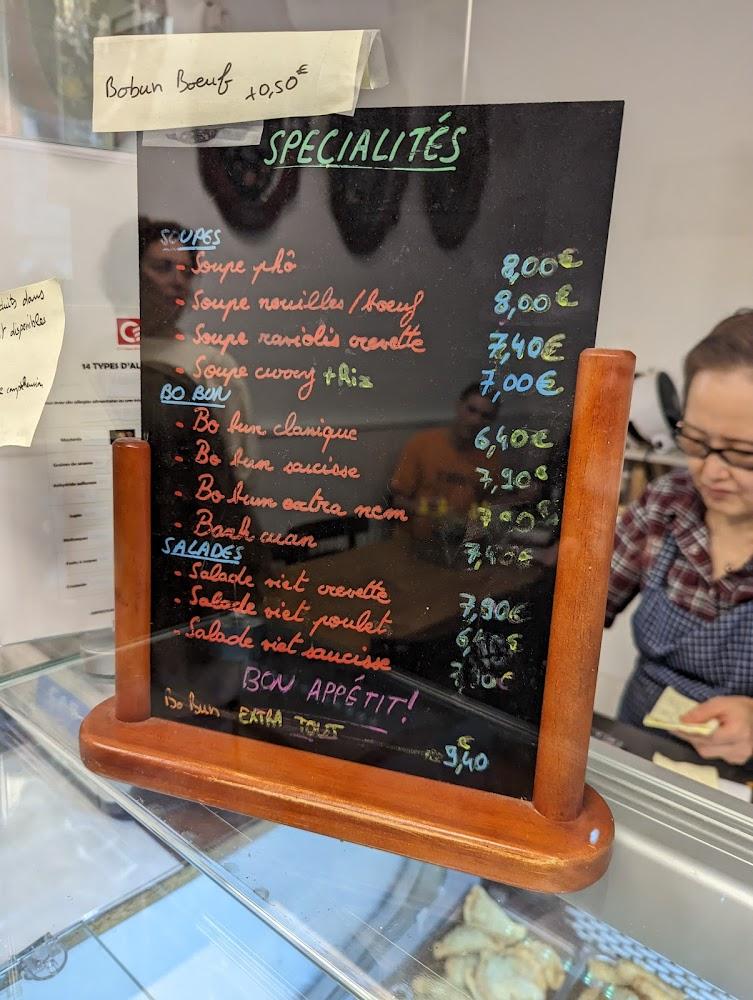 Bobun Boeuf +0,50€
SPECIALITÉS
SOUPES
- Soupe phô 8,00€
- Soupe nouilles / boeuf 8,00€
- Soupe raviolis crevette 7,40€
- Soupe curry +Riz 7,00€
BO BUN
- Bo bun classique 6,40€
- Bo bun saucisse 7,90€
- Bo bun extra nem
- Banh cuan
SALADES
- Salade viet crevette 7,90€
- Salade viet poulet
- Salade viet saucisse
BON APPÉTIT!
Bo Bun EXTRA TOUT 9,40€
dans
disponibles
14 TYPES D'AL
Moutarde